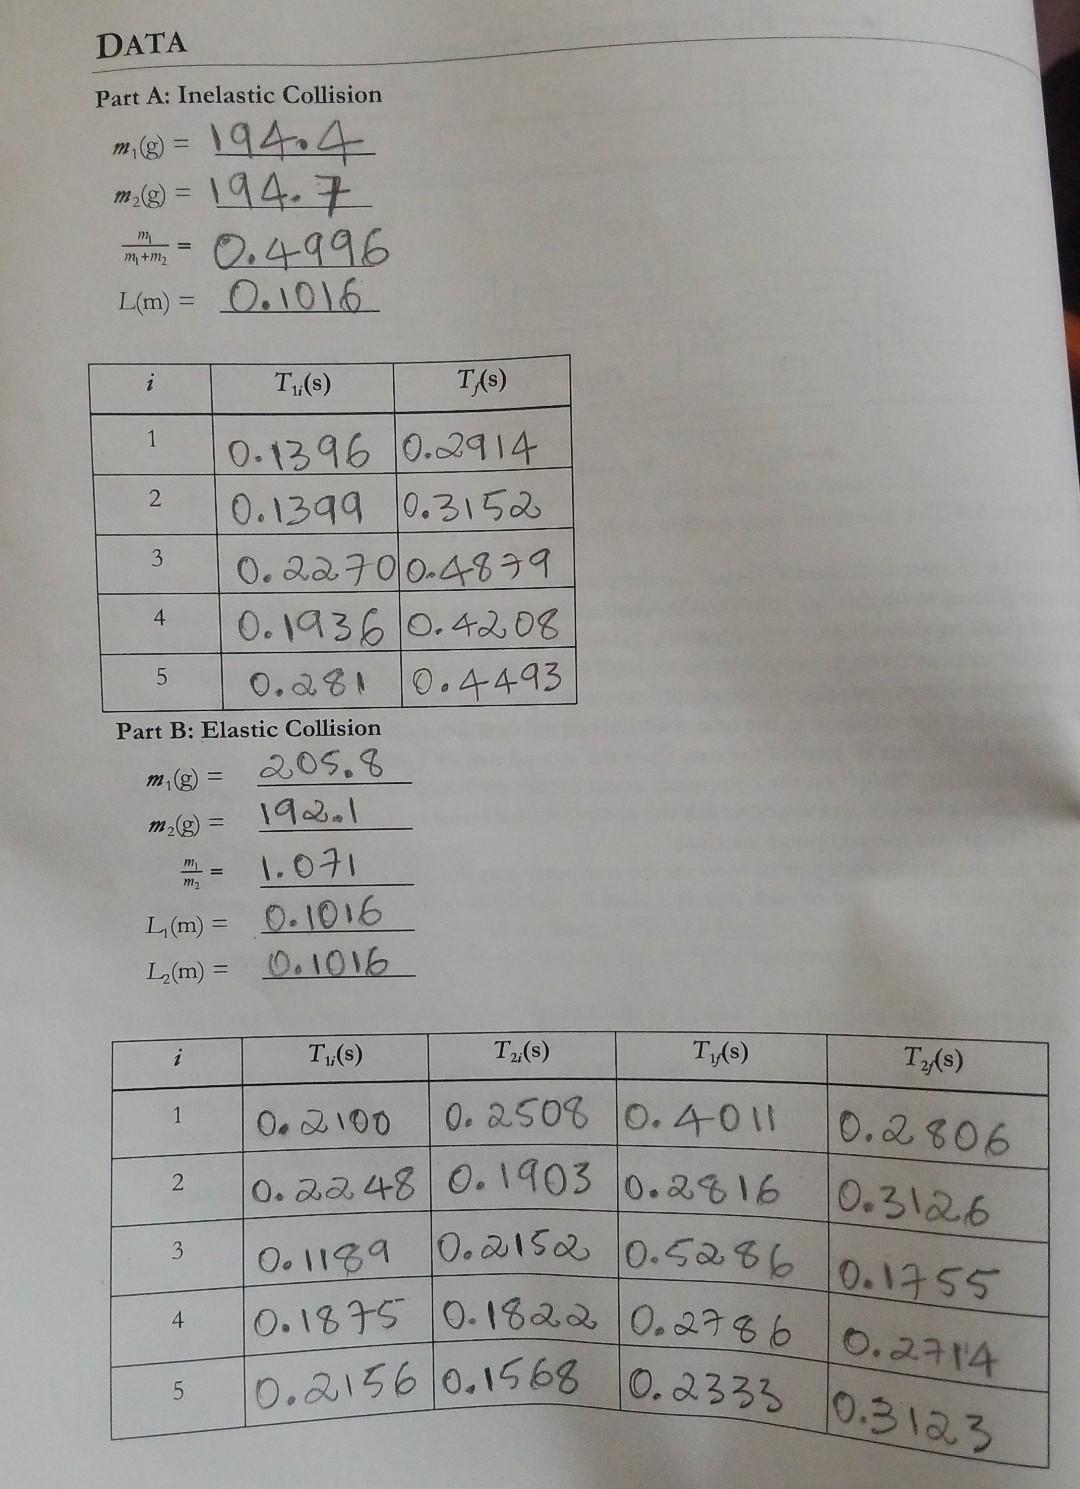 DATA
Part A: Inelastic Collision
m₁(g) = 194.4
m₂(g) = 194.7
m₁/(m₁+m₂) = 0.4996
L(m) = 0.1016
i T₁ᵢ(s) T_f(s)
1 0.1396 0.2914
2 0.1399 0.3152
3 0.2270 0.4879
4 0.1936 0.4208
5 0.281 0.4493
Part B: Elastic Collision
m₁(g) = 205.8
m₂(g) = 192.1
m₁/m₂ = 1.071
L₁(m) = 0.1016
L₂(m) = 0.1016
i T₁ᵢ(s) T₂ᵢ(s) T₁f(s) T₂f(s)
1 0.2100 0.2508 0.4011 0.2806
2 0.2248 0.1903 0.2816 0.3126
3 0.1189 0.2152 0.5286 0.1755
4 0.1875 0.1822 0.2786 0.2714
5 0.2156 0.1568 0.2333 0.3123